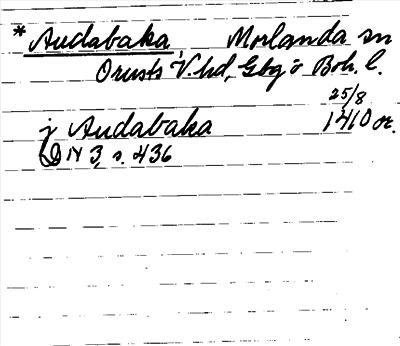 *Audabaka, Morlanda sn
Orusts V. hd, Gbg o Boh. l.
25/8
j Audabaka 1410 or.
DN 3, s. 436